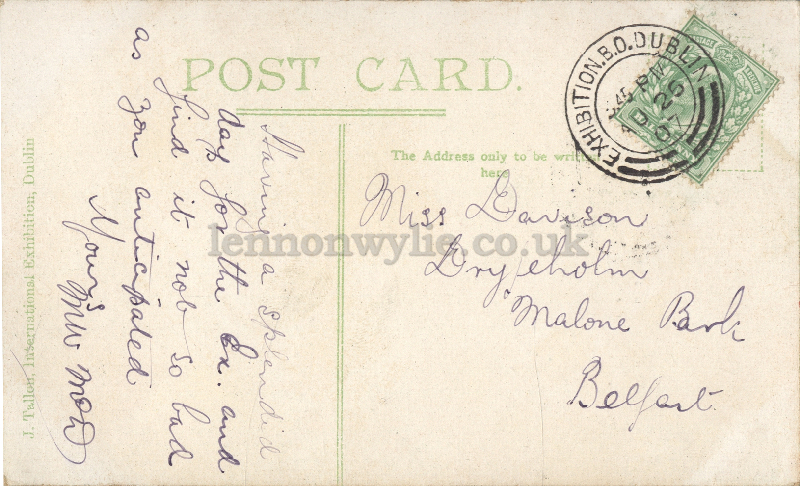 POST CARD.
The Address only to be written
here
EXHIBITION.B.O.DUBLIN
45 PM
26
07
Having a splendid
day for the Ex. and
find it not so bad
as you anticipated
Yours
Miss Davison
Malone Park
Belfast.
J. Tallon, International Exhibition, Dublin
lennonwylie.co.uk